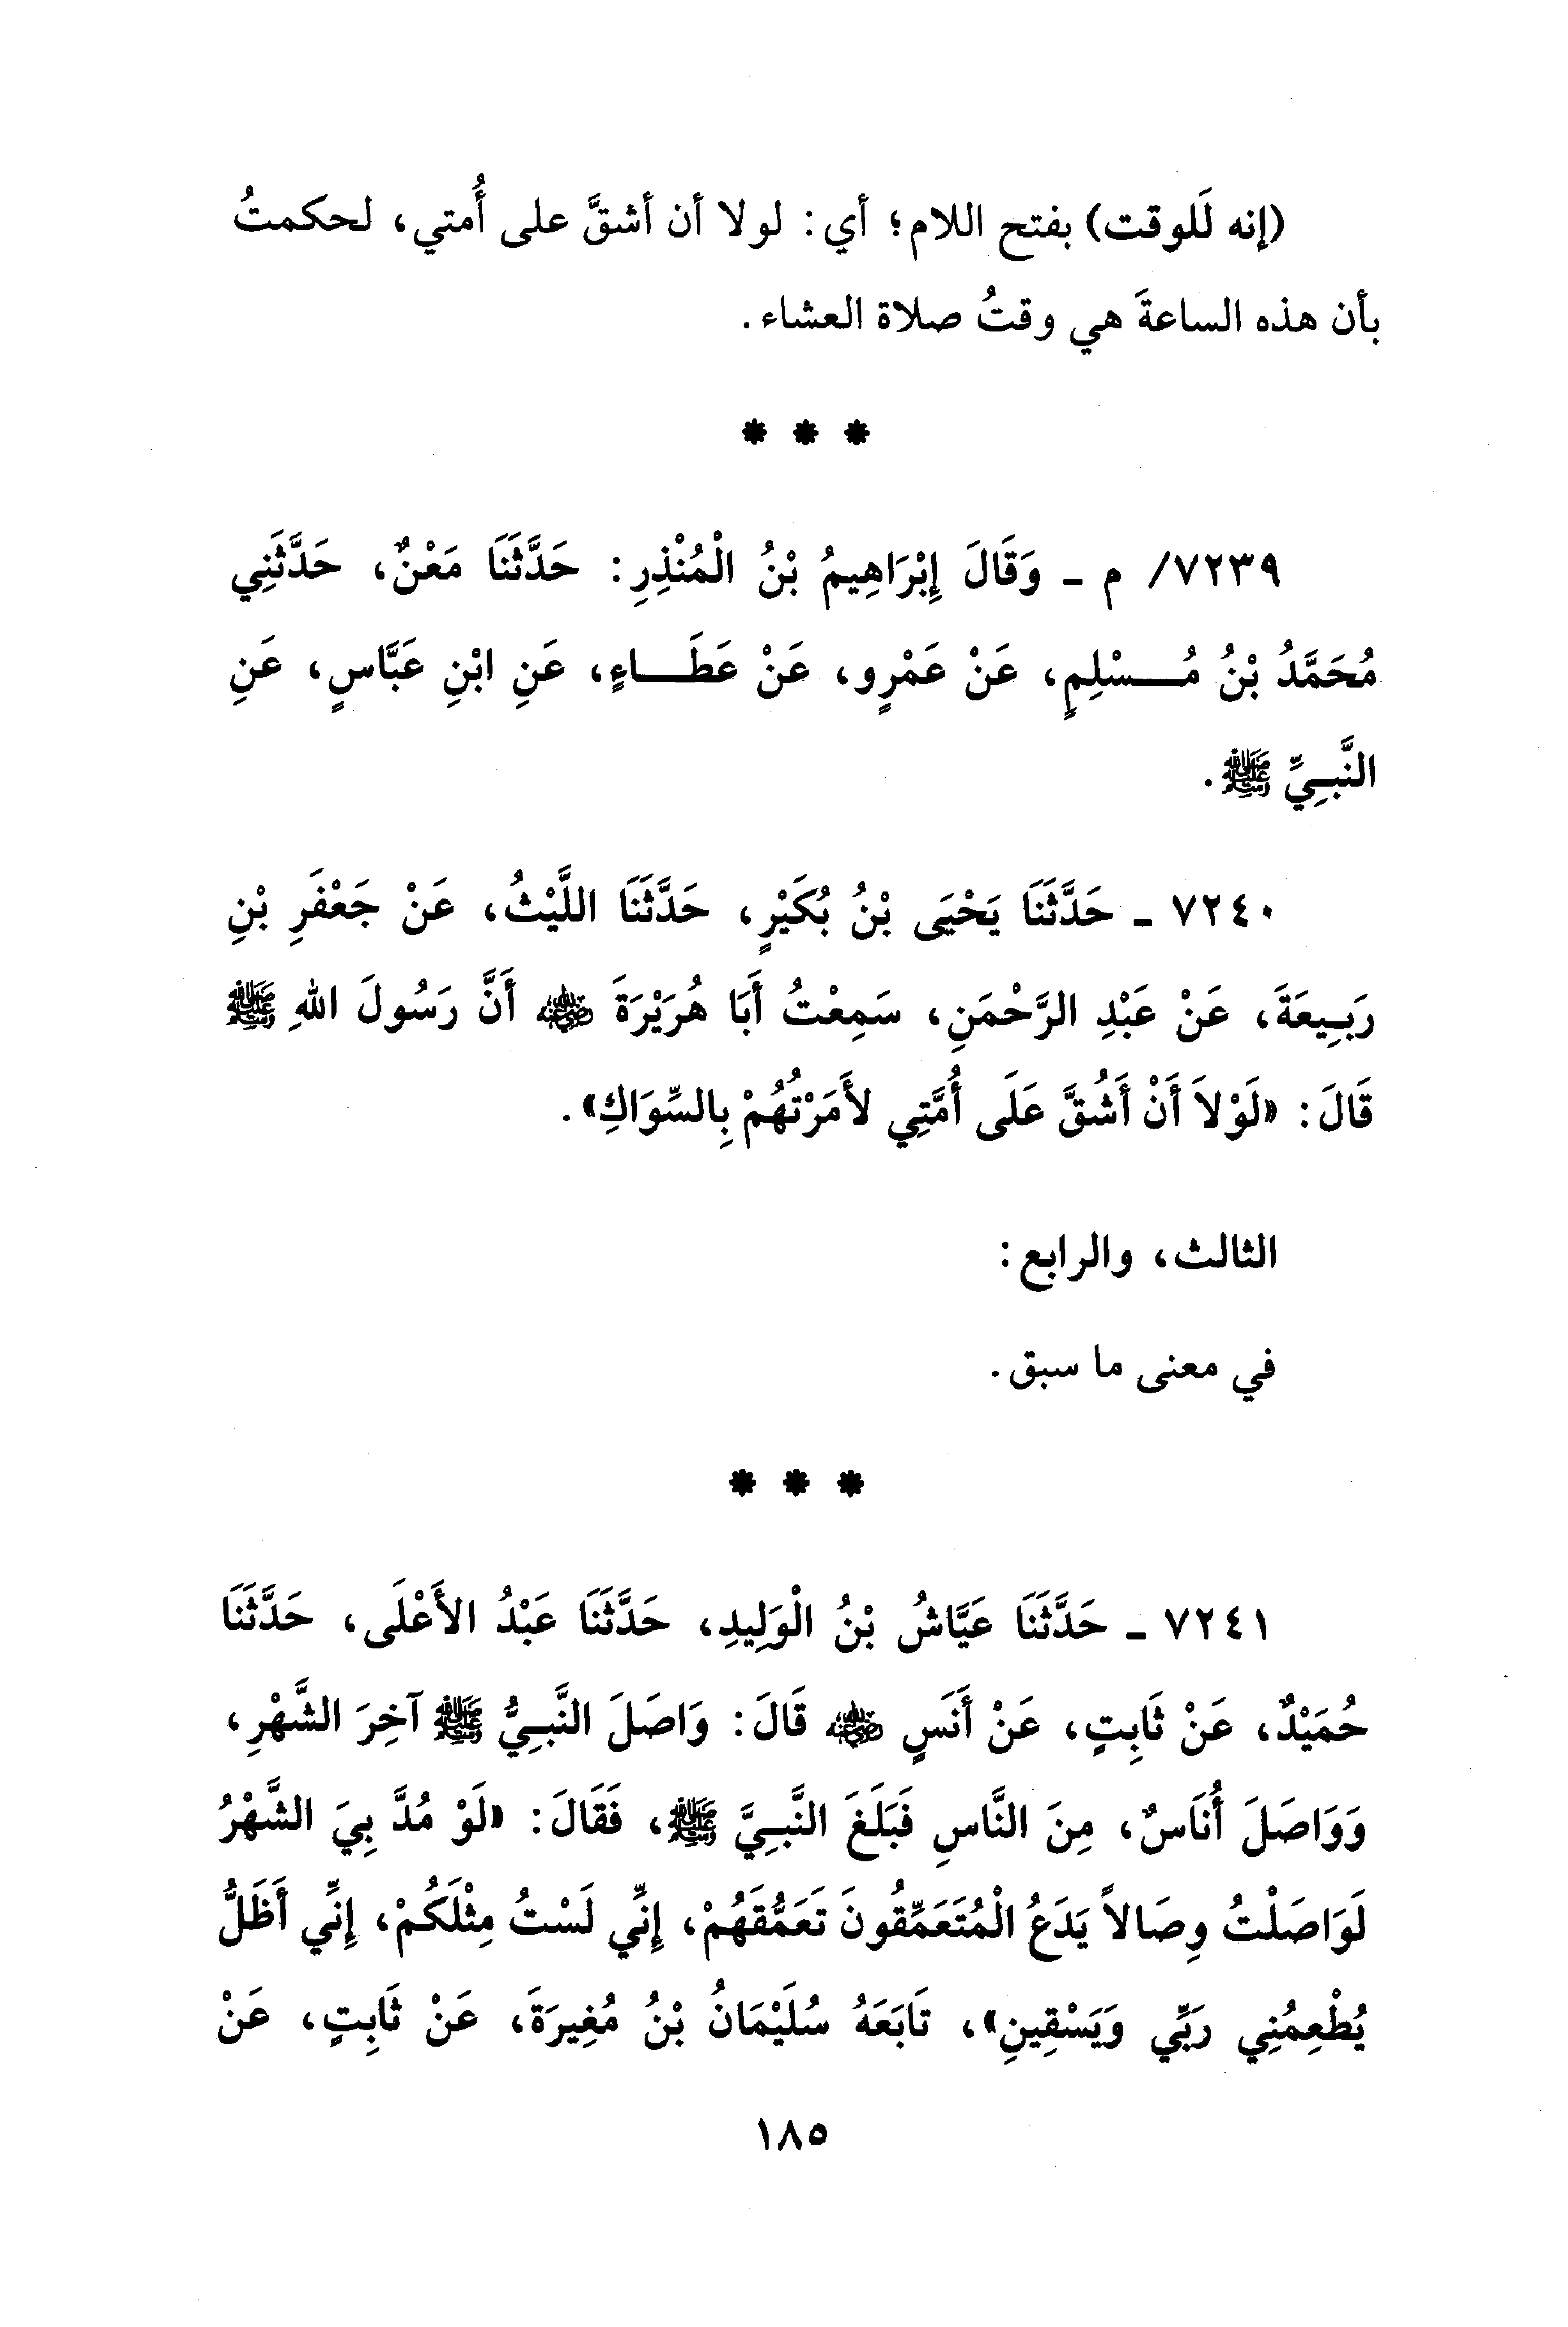 (إنه لَلوقت) بفتح اللام؛ أي: لولا أن أشقَّ على أُمتي، لحكمتُ
بأن هذه الساعةَ هي وقتُ صلاة العشاء.
* * *
٧٢٣٩/ م - وَقَالَ إِبْرَاهِيمُ بْنُ الْمُنْذِرِ: حَدَّثَنَا مَعْنٌ، حَدَّثَنِي
مُحَمَّدُ بْنُ مُسْلِمٍ، عَنْ عَمْرٍو، عَنْ عَطَاءٍ، عَنِ ابْنِ عَبَّاسٍ، عَنِ
النَّبِيِّ ﷺ.
٧٢٤٠ - حَدَّثَنَا يَحْيَى بْنُ بُكَيْرٍ، حَدَّثَنَا اللَّيْثُ، عَنْ جَعْفَرِ بْنِ
رَبِيعَةَ، عَنْ عَبْدِ الرَّحْمَنِ، سَمِعْتُ أَبَا هُرَيْرَةَ ﵁ أَنَّ رَسُولَ اللهِ ﷺ
قَالَ: «لَوْلاَ أَنْ أَشُقَّ عَلَى أُمَّتِي لأَمَرْتُهُمْ بِالسِّوَاكِ».
الثالث، والرابع:
في معنى ما سبق.
* * *
٧٢٤١ - حَدَّثَنَا عَيَّاشُ بْنُ الْوَلِيدِ، حَدَّثَنَا عَبْدُ الأَعْلَى، حَدَّثَنَا
حُمَيْدٌ، عَنْ ثَابِتٍ، عَنْ أَنَسٍ ﵁ قَالَ: وَاصَلَ النَّبِيُّ ﷺ آخِرَ الشَّهْرِ،
وَوَاصَلَ أُنَاسٌ، مِنَ النَّاسِ فَبَلَغَ النَّبِيَّ ﷺ، فَقَالَ: «لَوْ مُدَّ بِيَ الشَّهْرُ
لَوَاصَلْتُ وِصَالاً يَدَعُ الْمُتَعَمِّقُونَ تَعَمُّقَهُمْ، إِنِّي لَسْتُ مِثْلَكُمْ، إِنِّي أَظَلُّ
يُطْعِمُنِي رَبِّي وَيَسْقِينِ»، تَابَعَهُ سُلَيْمَانُ بْنُ مُغِيرَةَ، عَنْ ثَابِتٍ، عَنْ
١٨٥